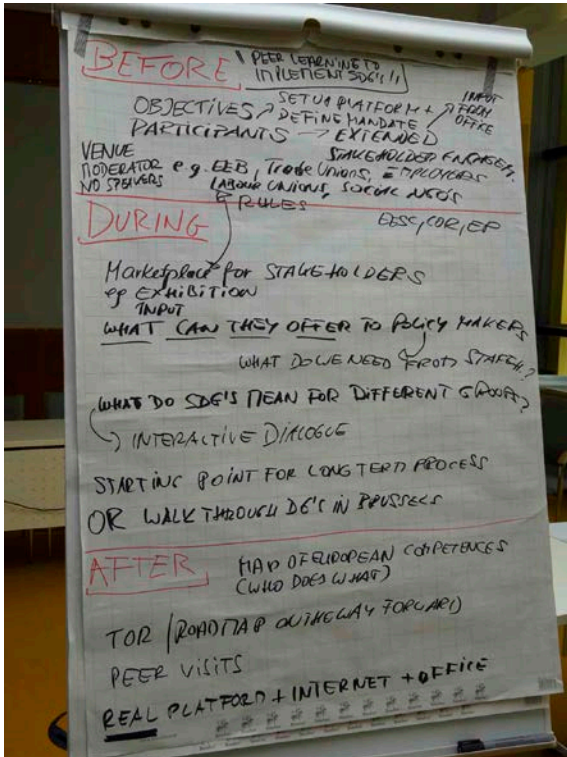 BEFORE
! PEER LEARNING TO
IMPLEMENT SDG's !!
OBJECTIVES → SET UP PLATFORM +
DEFINE MANDATE
INPUT
FROM
OFFICE
PARTICIPANTS → EXTENDED
STAKEHOLDER ENGAGEM.
VENUE
MODERATOR e.g. EEB, Trade Unions, EMPLOYERS
NO SPEAKERS
LABOUR UNIONS, SOCIAL NGO'S
RULES
DURING
EESC, COR, EP
Marketplace for STAKEHOLDERS
eg EXHIBITION
INPUT
WHAT CAN THEY OFFER TO POLICY MAKERS
WHAT DO WE NEED FROM STAKEH.?
WHAT DO SDG'S MEAN FOR DIFFERENT GROUPS?
→ INTERACTIVE DIALOGUE
STARTING POINT FOR LONG TERM PROCESS
OR WALK THROUGH DG'S IN BRUSSELS
AFTER
MAP OF EUROPEAN COMPETENCES
(WHO DOES WHAT)
TOR / ROADMAP ON THE WAY FORWARD
PEER VISITS
REAL PLATFORM + INTERNET + OFFICE